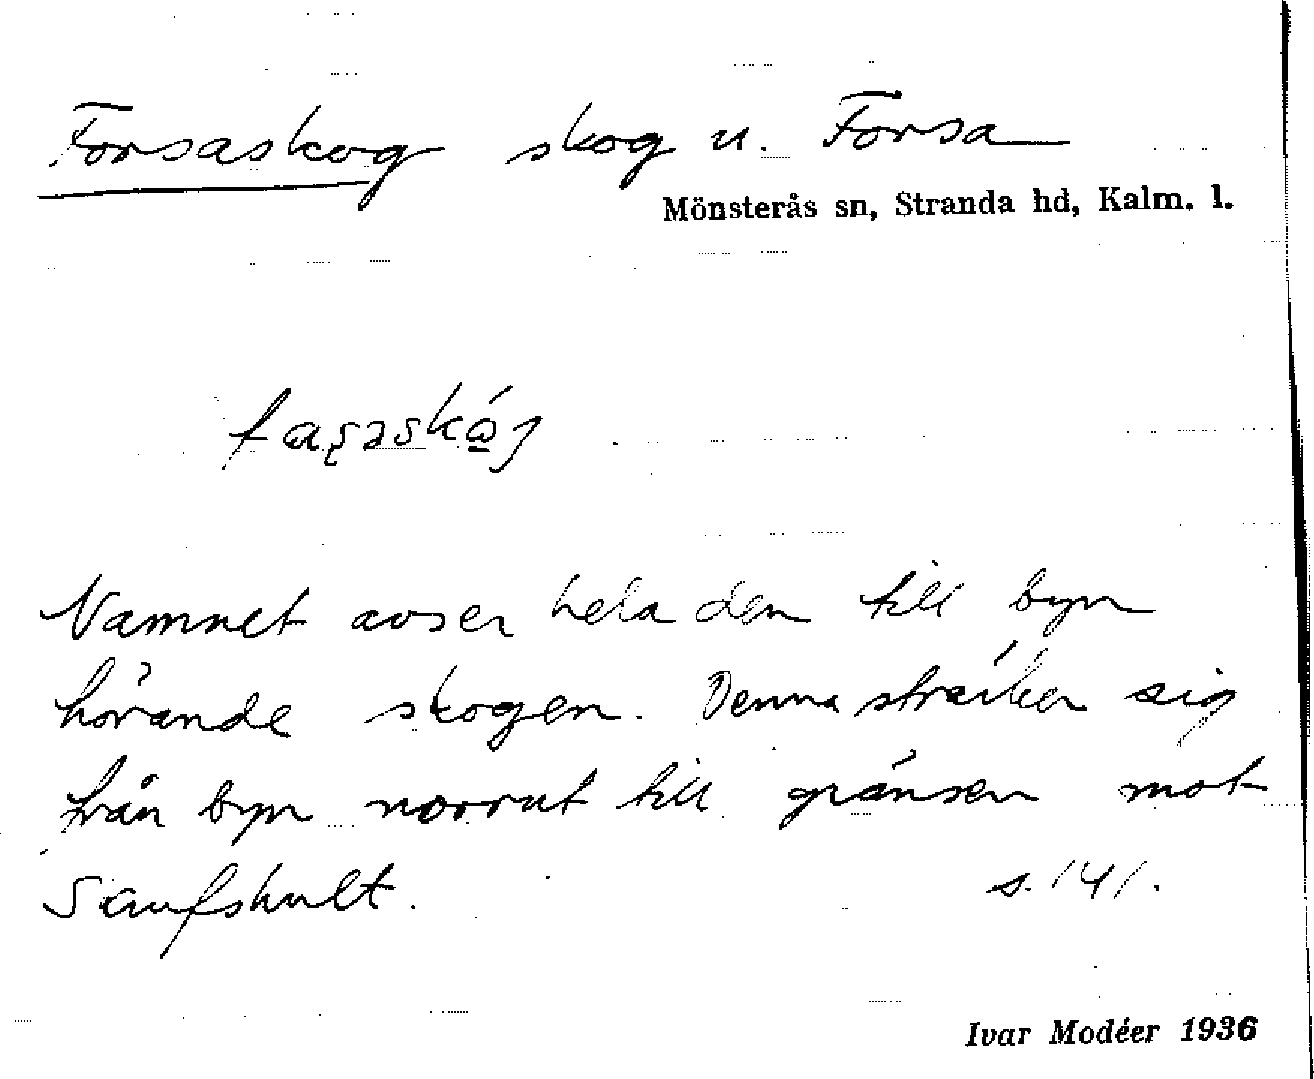 Forsaskog skog u. Forsa
Mönsterås sn, Stranda hd, Kalm. l.
Namnet avser hela den till byn
hörande skogen. Denna sträcker sig
från byn norrut till gränsen mot
s. 141.
Ivar Modéer 1936